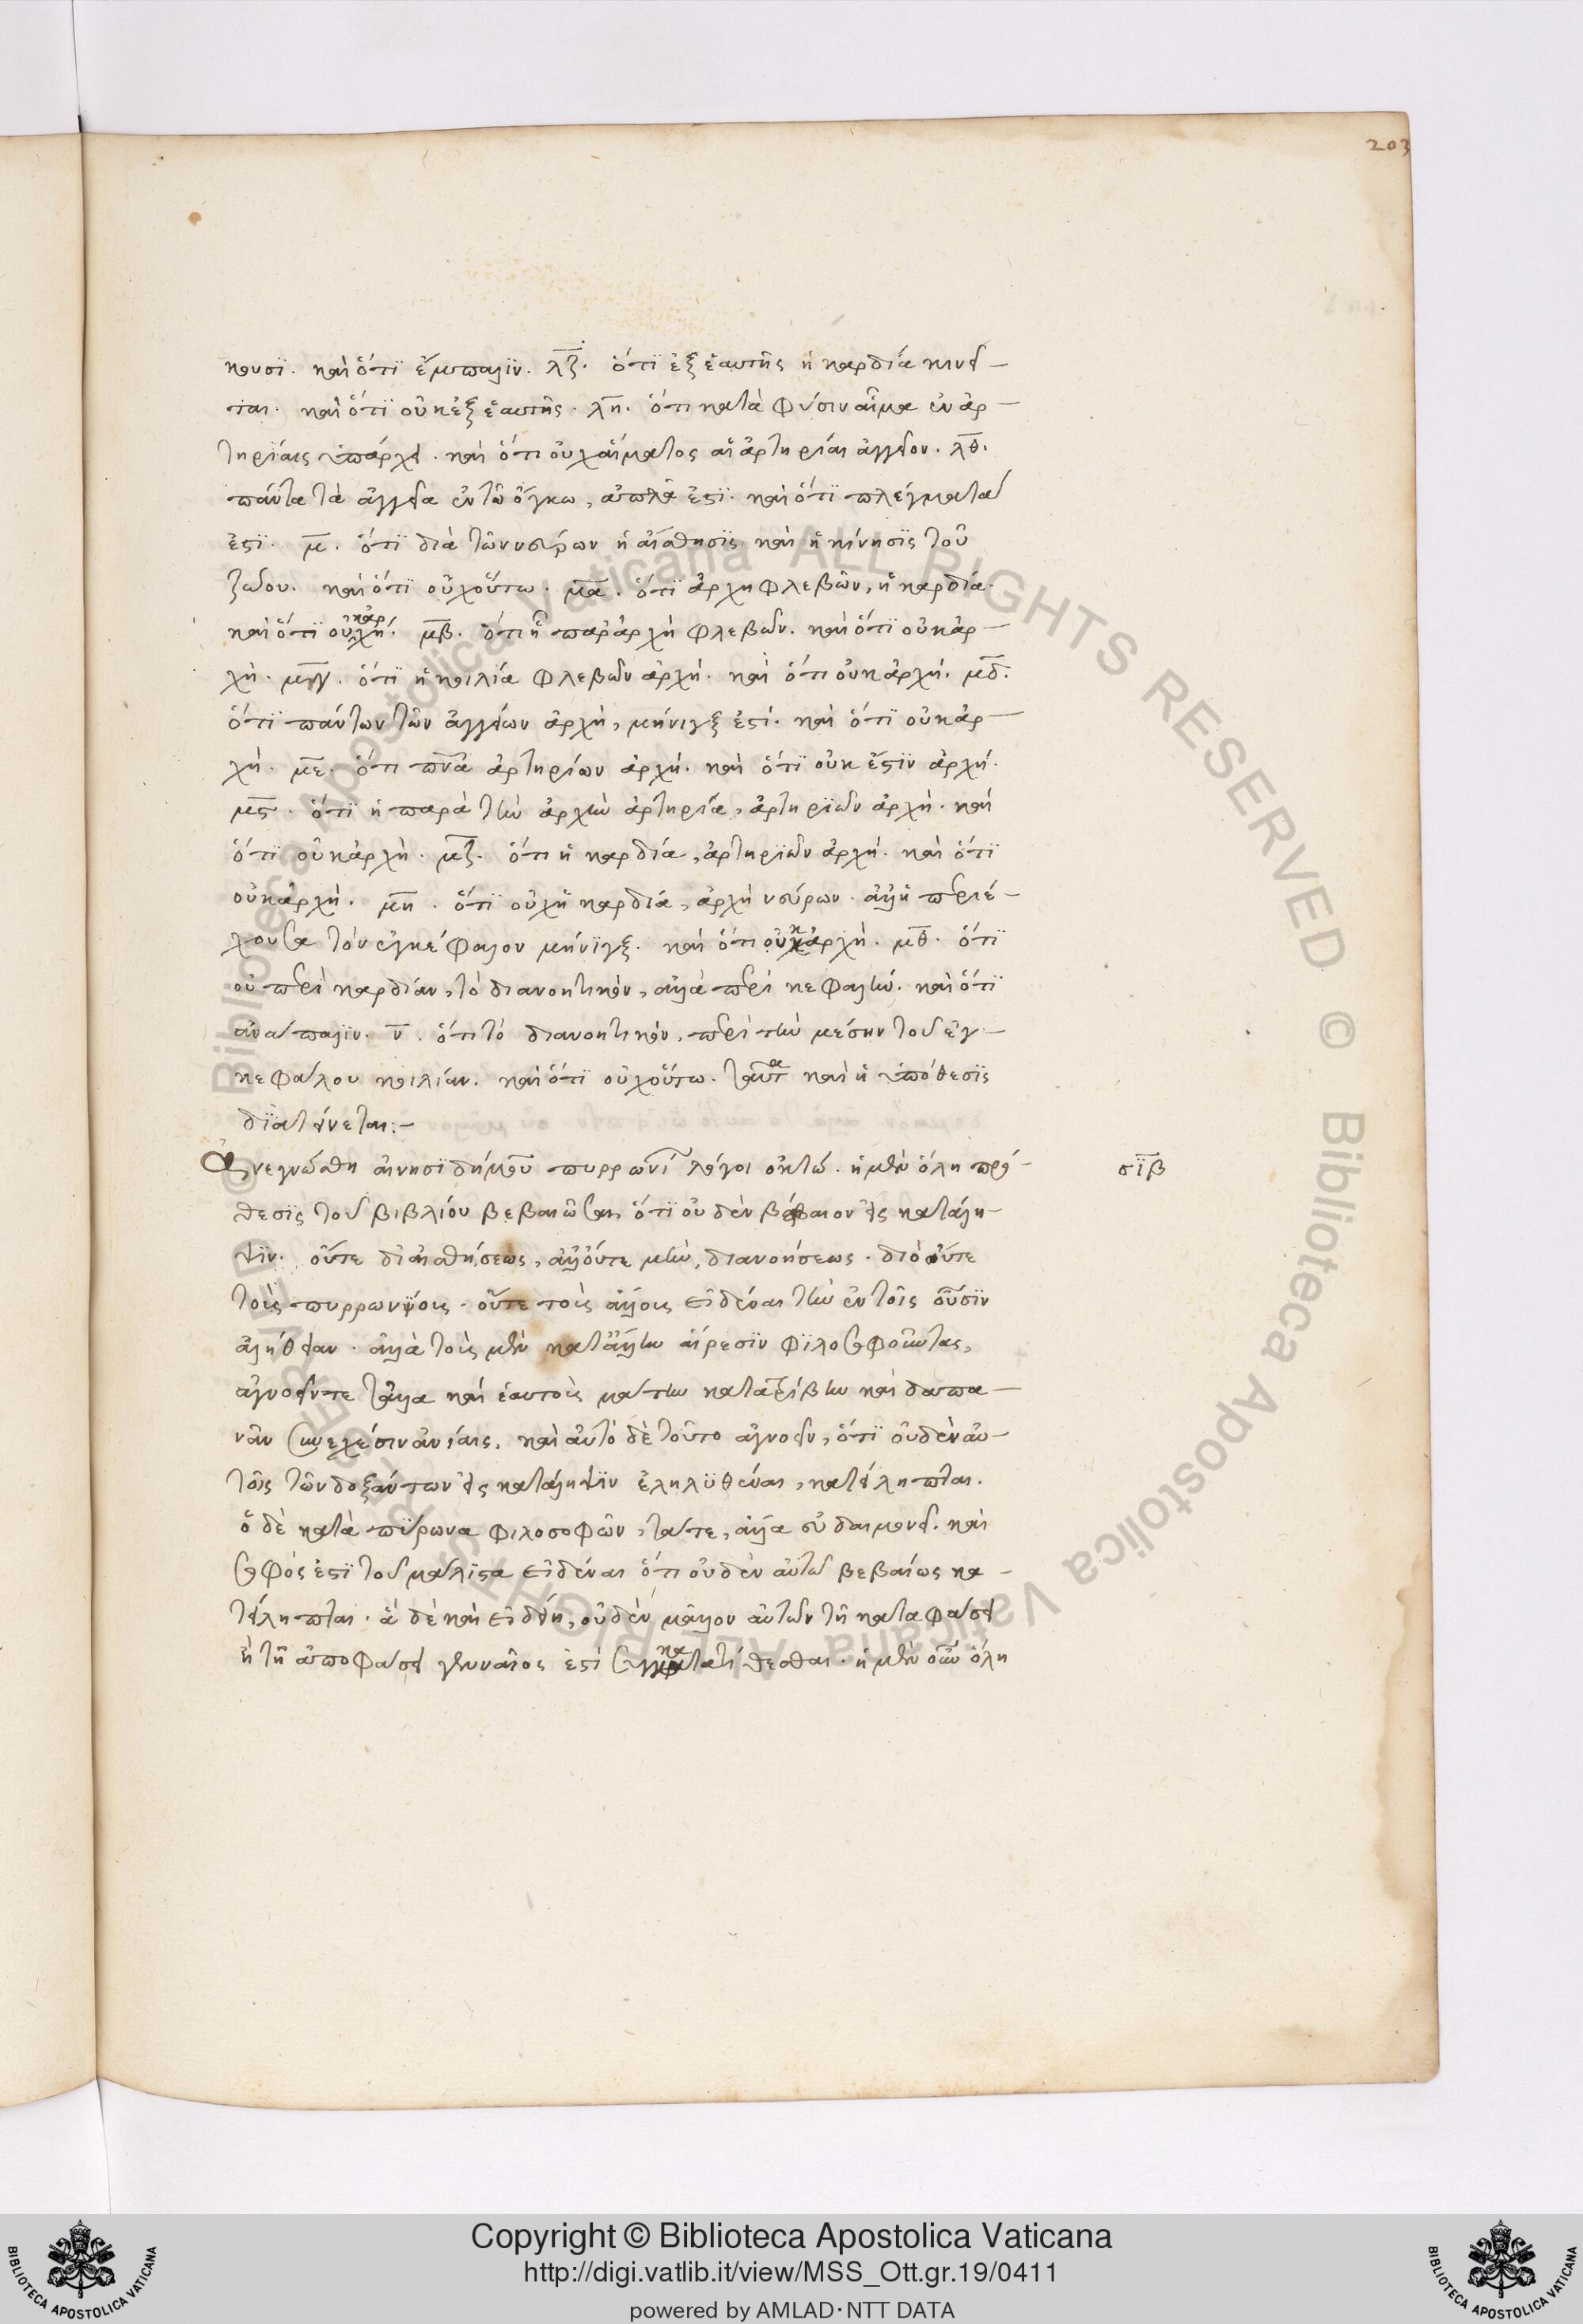 203
κουσι. καὶ ὅτι ἔμπαλιν. λζ. ὅτι ἐξ ἑαυτῆς ἡ καρδία κινεῖ-
ται. καὶ ὅτι οὐκ ἐξ ἑαυτῆς. λη. ὅτι κατὰ φύσιν αἷμα ἐν ἀρ-
τηρίαις ὑπάρχει. καὶ ὅτι οὐχ αἵματος αἱ ἀρτηρίαι ἀγγεῖον. λθ.
πάντα τὰ ἀγγεῖα ἐν τῶ ὄγκω, ἁπλᾶ ἐστι. καὶ ὅτι πλέγματα
ἐστι. μ. ὅτι διὰ τῶν νεύρων ἡ αἴσθησις καὶ ἡ κίνησις τοῦ
ζώου. καὶ ὅτι οὐχ οὕτω. μα. ὅτι ἀρχὴ φλεβῶν, ἡ καρδία.
καὶ ὅτι οὐκ ἀρχή. μβ. ὅτι ἧπαρ ἀρχὴ φλεβῶν. καὶ ὅτι οὐκ ἀρ-
χή. μγ. ὅτι ἡ κοιλία φλεβῶν ἀρχή. καὶ ὅτι οὐκ ἀρχή. μδ.
ὅτι πάντων τῶν ἀγγείων ἀρχὴ, μήνιγξ ἐστί. καὶ ὅτι οὐκ ἀρ-
χή. με. ὅτι πνα ἀρτηρίων ἀρχή. καὶ ὅτι οὐκ ἔστιν ἀρχή.
μς. ὅτι ἡ παρὰ τὴν ἀρχὴν ἀρτηρία, ἀρτηριῶν ἀρχή. καὶ
ὅτι οὐκ ἀρχή. μζ. ὅτι ἡ καρδία, ἀρτηριῶν ἀρχή. καὶ ὅτι
οὐκ ἀρχή. μη. ὅτι οὐχ ἡ καρδία, ἀρχὴ νεύρων. ἀλλ' ἡ περιέ-
χουσα τὸν ἐγκέφαλον μήνιγξ. καὶ ὅτι οὐκ ἀρχή. μθ. ὅτι
οὐ περὶ καρδίαν, τὸ διανοητικὸν, ἀλλὰ περὶ κεφαλήν. καὶ ὅτι
ἀνάπαλιν. ν. ὅτι τὸ διανοητικόν, περὶ τὴν μέσην τοῦ ἐγ-
κεφάλου κοιλίαν. καὶ ὅτι οὐχ οὕτω. ταῦτα καὶ ἡ ὑπόθεσις
διατείνεται:-
Ἀνεγνώσθη αἰνησιδήμου πυρρωνι λόγοι ὀκτώ. ἡ μὲν ὅλη πρό-
σιβ
θεσις τοῦ βιβλίου βεβαιῶσαι, ὅτι οὐδὲν βέβαιον εἰς κατάλη-
ψιν. οὔτε δι' αἰσθήσεως, ἀλλ' οὔτε μὴν, διανοήσεως. διὸ οὔτε
τοὺς πυρρωνίους. οὔτε τοὺς ἄλλους εἰδέναι τὴν ἐν τοῖς οὖσιν
ἀλήθειαν. ἀλλὰ τοὺς μὲν κατ' ἄλλην αἵρεσιν φιλοσοφοῦντας,
ἀγνοεῖν τε τἄλλα καὶ ἑαυτοὺς μάτην κατατρίβειν καὶ δαπα-
νᾶν συνεχέσιν ἀνίαις, καὶ αὐτὸ δὲ τοῦτο ἀγνοεῖν, ὅτι οὐδὲν αὐ-
τοῖς τῶν δοξάντων εἰς κατάληψιν ἐληλυθέναι, κατείληπται.
ὁ δὲ κατὰ πύρωνα φιλοσοφῶν, τά τε, ἄλλα εὐδαιμονεῖ. καὶ
σοφός ἐστι τοῦ μάλιστα εἰδέναι ὅτι οὐδὲν αὐτῶ βεβαίως κα-
τείληπται. ἃ δὲ καὶ εἰδείη, οὐδὲν μᾶλλον αὐτῶν τῆ καταφάσει
ἢ τῆ ἀποφάσει γενναῖος ἐστὶ συγκατατίθεσθαι. ἡ μὲν οὖν ὅλη
Copyright © Biblioteca Apostolica Vaticana
http://digi.vatlib.it/view/MSS_Ott.gr.19/0411
powered by AMLAD·NTT DATA